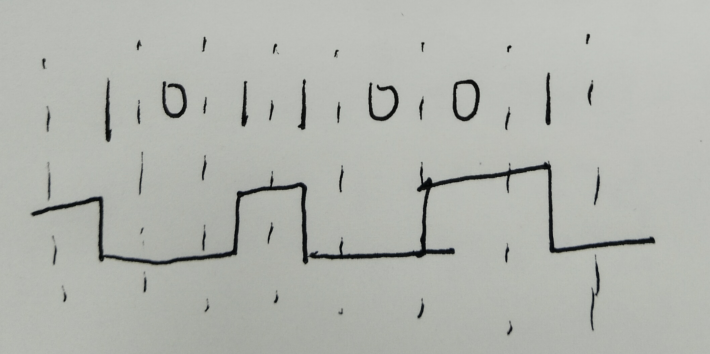 1 0 1 1 0 0 1